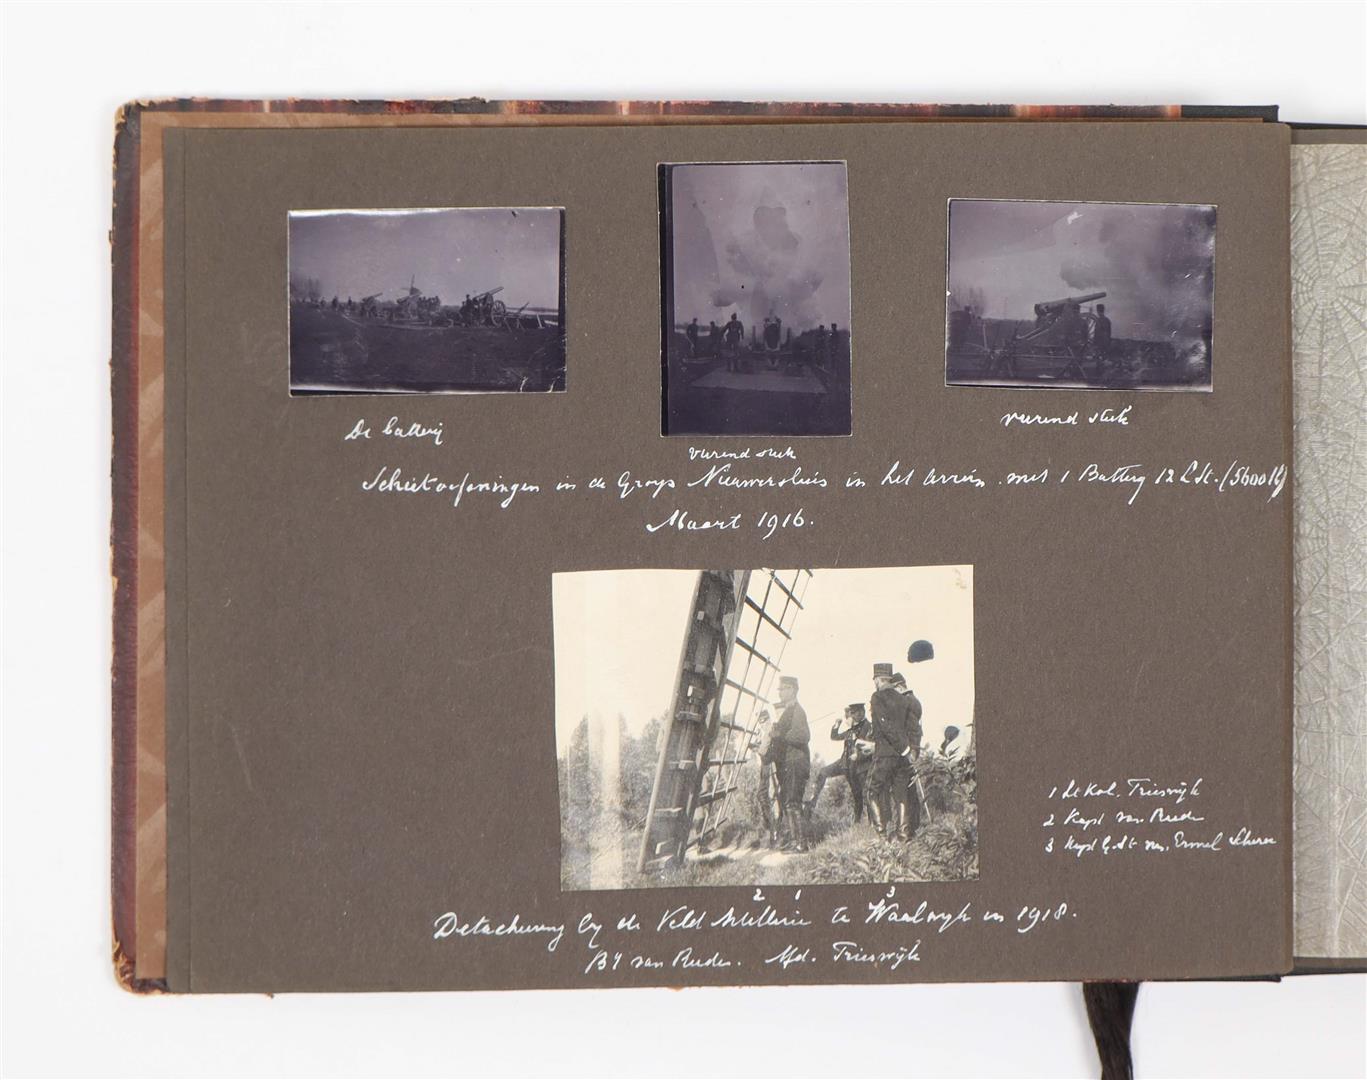 De batterij
vurend stuk
vurend stuk
Schietoefeningen in de Groep Nieuwersluis in het terrein met 1 Batterij 12 L St. (5600
Maart 1916.
1 Lt Kol. Trieswijk
2 Kapt van Rede
3 Kapt G. St van Ermel Scherer
2 1 3
Detacheering bij de Veld Artillerie te Waalwijk in 1918.
By van Rede. Afd. Trieswijk